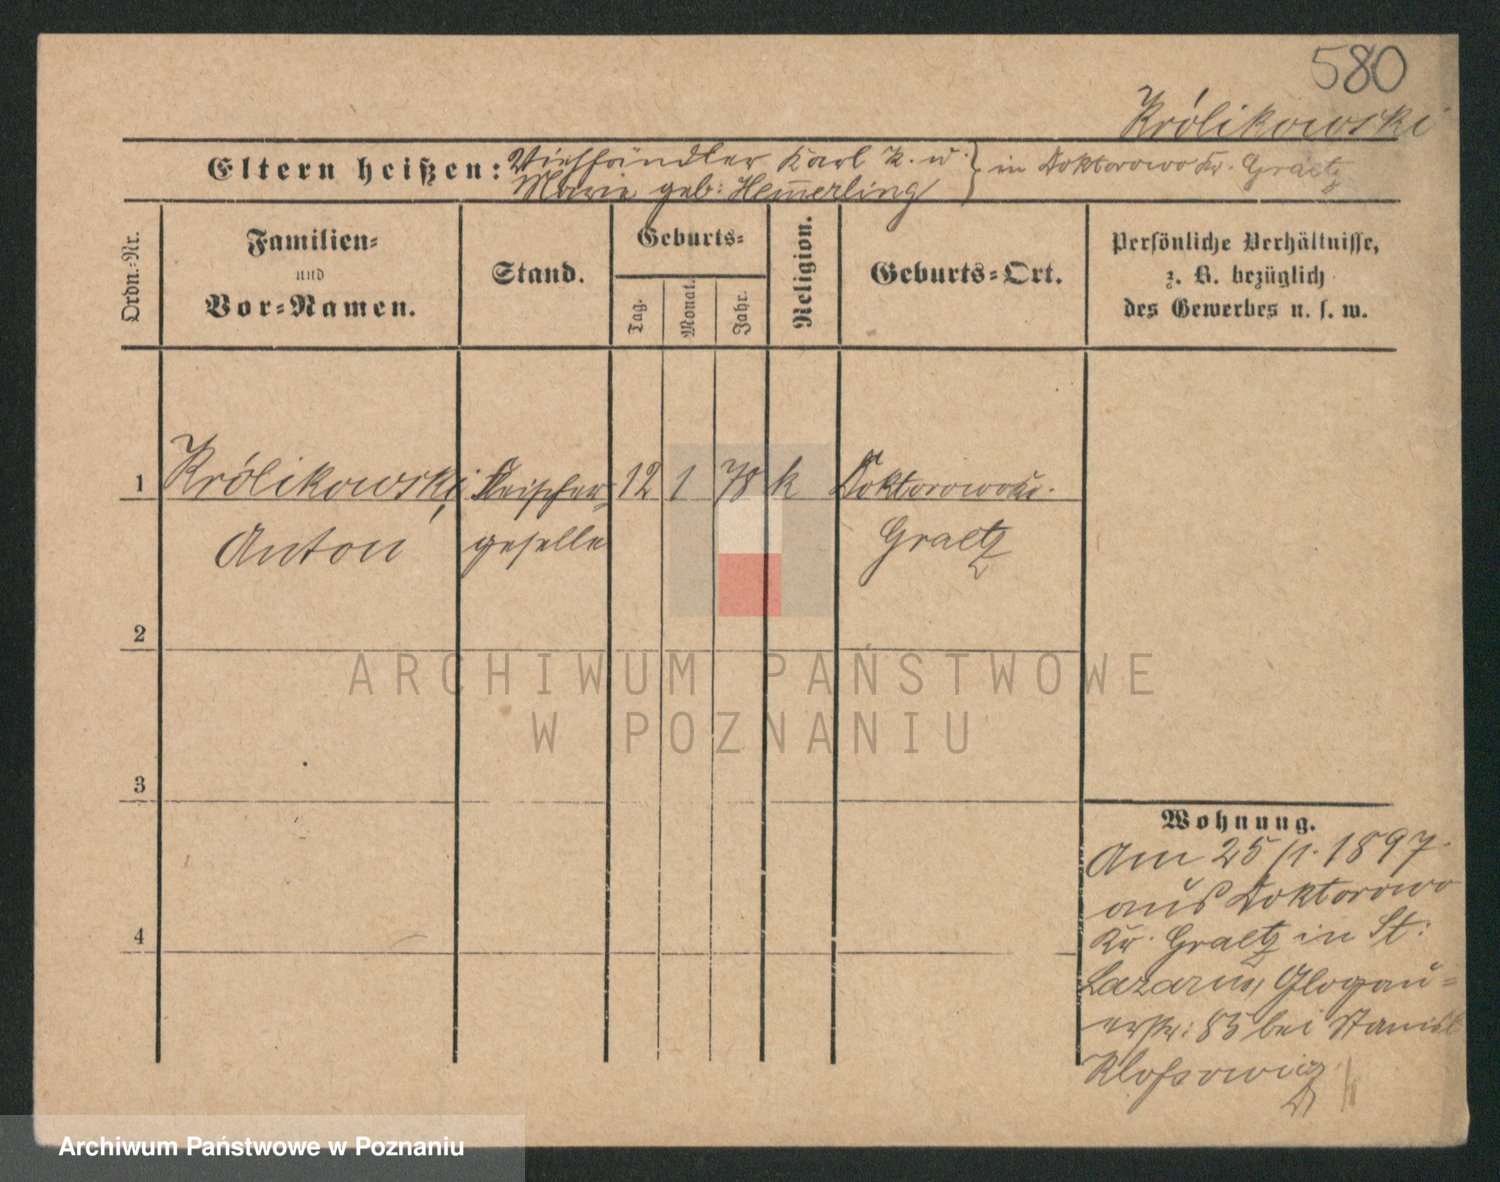 580
Królikowski
Eltern heißen: Viehhändler Karl K. u. } in Doktorowo Kr. Graetz
Marie geb: Hem̅erling
Ordn.-Nr.
Familien-
und
Vor-Namen.
Stand.
Geburts-
Tag.
Monat.
Jahr.
Religion.
Geburts-Ort.
Persönliche Verhältnisse,
z. B. bezüglich
des Gewerbes u. s. w.
1 Królikowski, Fleischer- 12 1 78 k Doktorowo Kr.
Anton geselle Graetz
2
3
4
Wohnung.
Am 25/1. 1897.
aus Doktorowo
Kr. Graetz in St:
Lazarus, Glogau-
erstr: 85 bei Stanisl
Klossowicz
ARCHIWUM PAŃSTWOWE
W POZNANIU
Archiwum Państwowe w Poznaniu